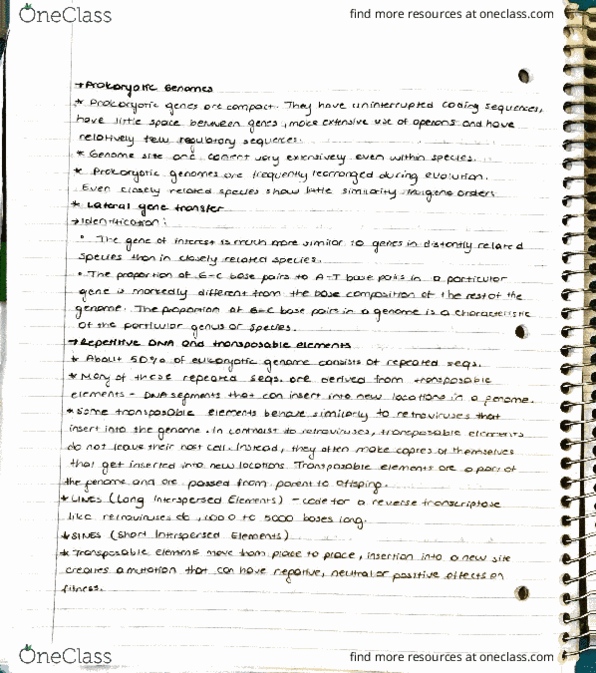 OneClass
find more resources at oneclass.com
→Prokaryotic Genomes
* Prokaryotic genes are compact. They have uninterrupted coding sequences,
have little space between genes, make extensive use of operons and have
relatively few regulatory sequences.
* Genome size and content vary extensively even within species.
* Prokaryotic genomes are frequently rearranged during evolution.
Even closely related species show little similarity in gene orders
* Lateral gene transfer
→Identification:
• The gene of interest is much more similar to genes in distantly related
species than in closely related species.
• The proportion of G-C base pairs to A-T base pairs in a particular
gene is markedly different from the base composition of the rest of the
genome. The proportion of G-C base pairs in a genome is a characteristic
of the particular genus or species.
→Repetitive DNA and transposable elements
* About 50% of eukaryotic genome consists of repeated seqs.
* Many of these repeated seqs. are derived from transposable
elements - DNA segments that can insert into new locations in a genome.
* Some transposable elements behave similarly to retroviruses that
insert into the genome. In contrast to retroviruses, transposable elements
do not leave their host cell. Instead, they often make copies of themselves
that get inserted into new locations. Transposable elements are a part of
the genome and are passed from parent to offspring.
* LINEs (Long Interspersed Elements) - code for a reverse transcriptase
like retroviruses do, 1000 to 5000 bases long.
* SINEs (Short Interspersed Elements)
* Transposable elements move from place to place, insertion into a new site
creates a mutation that can have negative, neutral or positive effects on
fitness.
OneClass
find more resources at oneclass.com